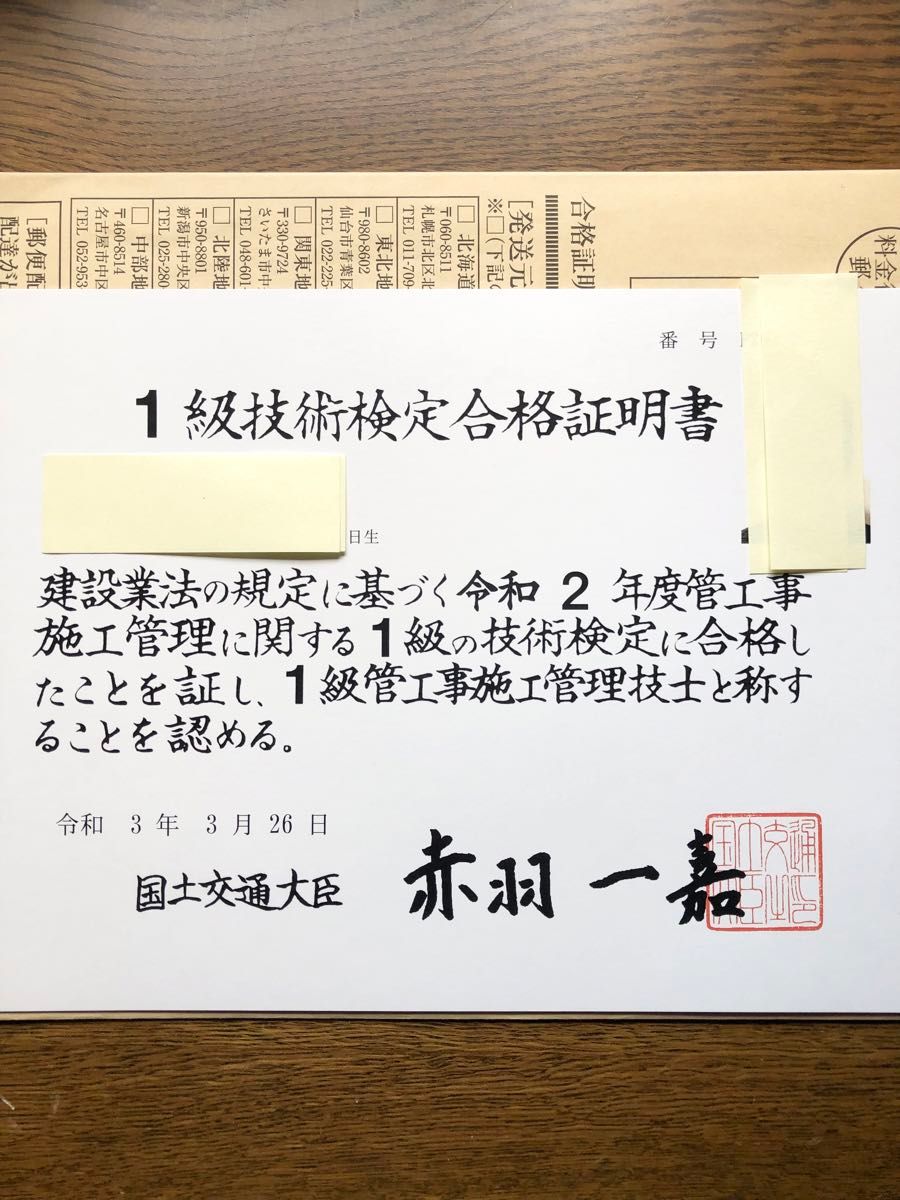 合格証明
料金
郵
[発送元
※□(下記の
□ 北海道
〒060-8511
札幌市北区北
TEL 011-709-
□ 東北地
〒980-8602
仙台市青葉区
TEL 022-225-
□ 関東地
〒330-9724
さいたま市中
TEL 048-601-
□ 北陸地
〒950-8801
新潟市中央区
TEL 025-280-
□ 中部地
〒460-8514
名古屋市中区
TEL 052-953-
[郵便配
配達が
番号
1級技術検定合格証明書
日生
建設業法の規定に基づく令和 2 年度管工事
施工管理に関する1級の技術検定に合格し
たことを証し、1級管工事施工管理技士と称す
ることを認める。
令和 3 年 3 月 26 日
国土交通大臣 赤羽一嘉